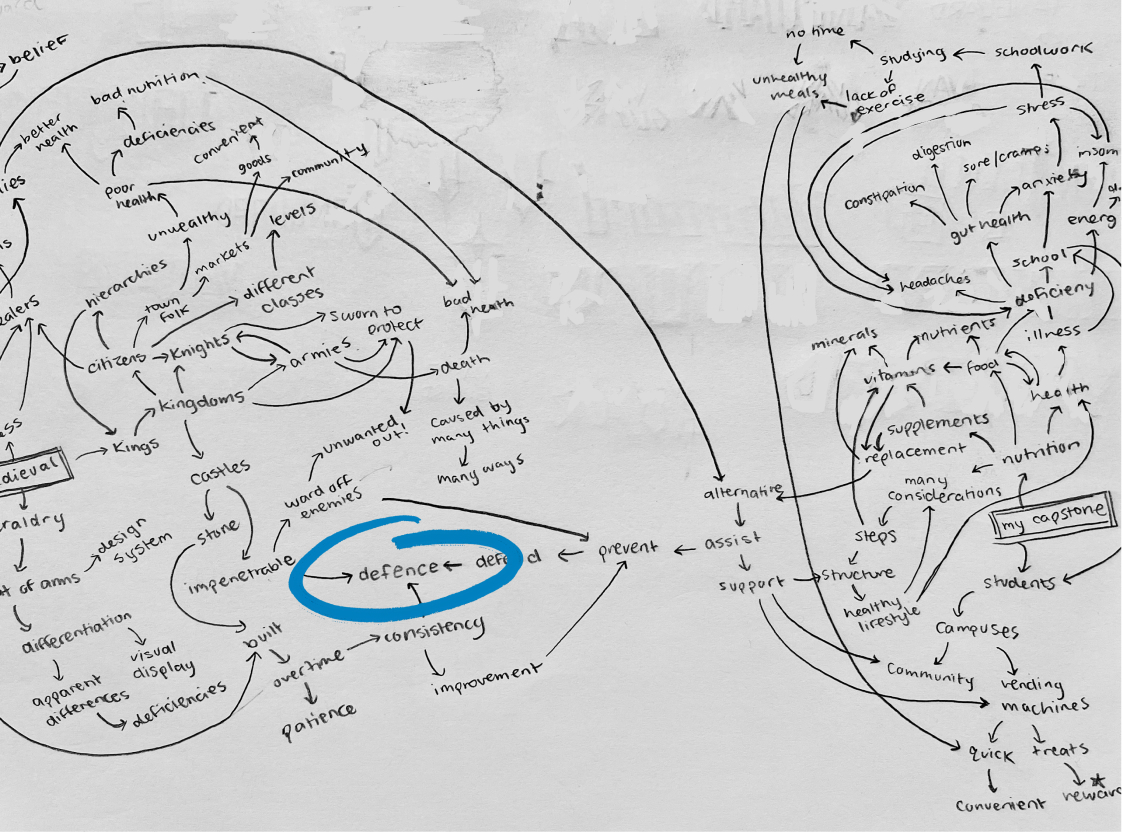 belief
no time
studying
schoolwork
unhealthy
meals
lack of
exercise
stress
bad nutrition
better
health
deficiencies
convenient
goods
community
digestion
sore/cramps
insom
poor
health
constipation
anxiety
unhealthy
markets
levels
gut health
energ
hierarchies
different
classes
school
town
folk
headaches
deficieny
bad
health
ealers
sworn to
protect
minerals
nutrients
illness
citizens
Knights
armies
death
vitamins
food
health
kingdoms
supplements
Kings
unwanted
out!
caused by
many things
replacement
nutrition
dieval
castles
many ways
many
considerations
ward off
enemies
alternative
my capstone
raldry
design
system
stone
steps
assist
prevent
impenetrable
defence
support
structure
students
t of arms
healthy
lifestyle
differentiation
built
consistency
campuses
visual
display
overtime
improvement
community
vending
machines
apparent
differences
deficiencies
patience
quick
treats
convenient
reward